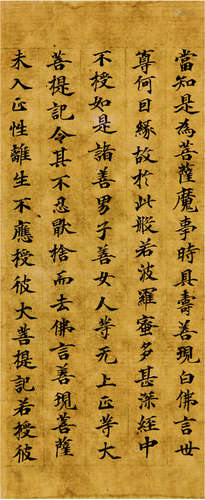 當知是為菩薩魔事時具壽善現白佛言世
尊何因緣故於此般若波羅蜜多甚深經中
不授如是諸善男子善女人等无上正等大
菩提記令其不忍猒捨而去佛言善現菩薩
未入正性離生不應授彼大菩提記若授彼